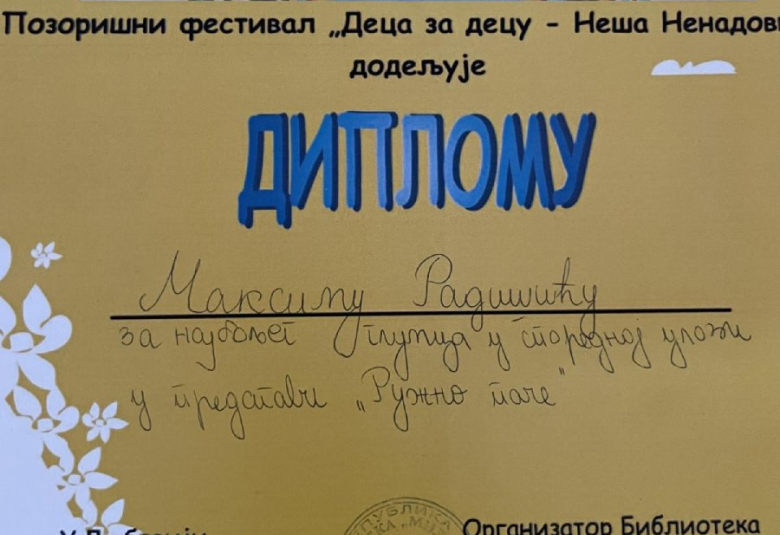 Позоришни фестивал „Деца за децу - Неша Ненадови
додељује
ДИПЛОМУ
Максиму Радишићу
за најбољег глумца у споредној улози
у представи „Ружно паче"
ПУБЛИКА
Организатор Библиотека